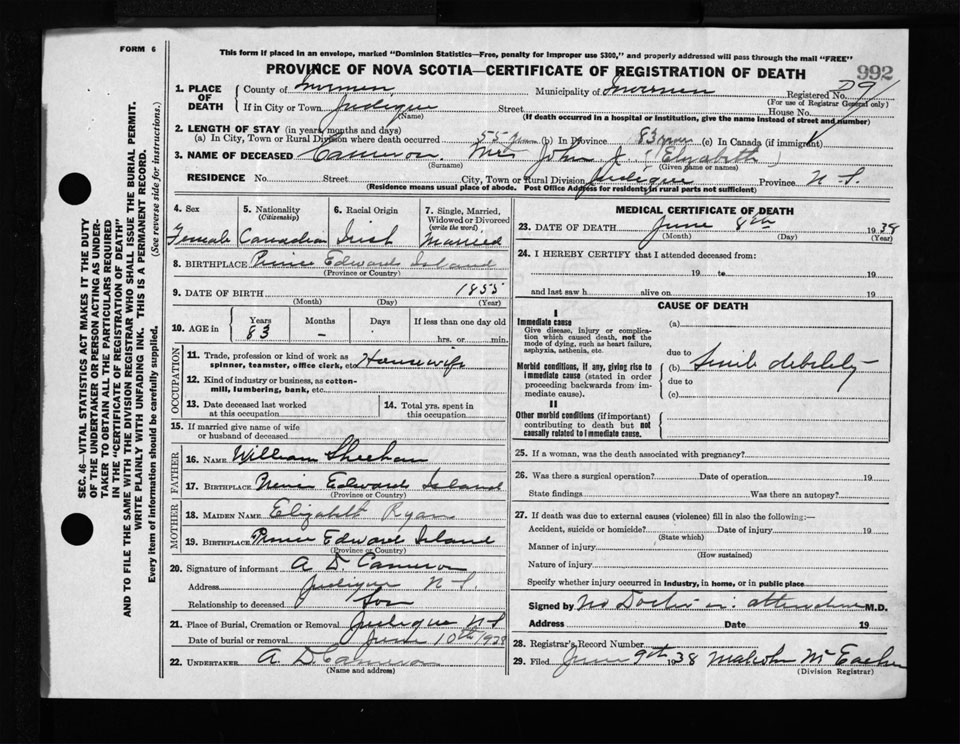 FORM 6
This form if placed in an envelope, marked "Dominion Statistics—Free, penalty for improper use $300," and properly addressed will pass through the mail "FREE"
PROVINCE OF NOVA SCOTIA—CERTIFICATE OF REGISTRATION OF DEATH
992
1. PLACE OF DEATH
County of Inverness Municipality of Inverness Registered No.
(For use of Registrar General only)
If in City or Town Judique Street House No.
(Name) (If death occurred in a hospital or institution, give the name instead of street and number)
2. LENGTH OF STAY (in years, months and days)
(a) In City, Town or Rural Division where death occurred 55 years (b) In Province 83 years (c) In Canada (if immigrant)
3. NAME OF DECEASED Cameron. Mrs John J. (Elizabeth)
(Surname) (Given name or names)
RESIDENCE No. Street City, Town or Rural Division Judique Province N S.
(Residence means usual place of abode. Post Office Address for residents in rural parts not sufficient)
4. Sex
Female
5. Nationality (Citizenship)
Canadian
6. Racial Origin
Irish
7. Single, Married, Widowed or Divorced (write the word)
Married
8. BIRTHPLACE Prince Edwards Island
(Province or Country)
9. DATE OF BIRTH 1855
(Month) (Day) (Year)
10. AGE in
Years 83
Months –
Days
If less than one day old
hrs. or min.
OCCUPATION
11. Trade, profession or kind of work as spinner, teamster, office clerk, etc. Housewife
12. Kind of industry or business, as cotton-mill, lumbering, bank, etc.
13. Date deceased last worked at this occupation
14. Total yrs. spent in this occupation
15. If married give name of wife or husband of deceased
FATHER
16. NAME William Sheehan
17. BIRTHPLACE Prince Edwards Island
(Province or Country)
MOTHER
18. MAIDEN NAME Elizabeth Ryan
19. BIRTHPLACE Prince Edward Island
(Province or Country)
20. Signature of informant A D. Cameron
Address Judique N S.
Relationship to deceased Son
21. Place of Burial, Cremation or Removal Judique N S
Date of burial or removal June 10th 1938
22. UNDERTAKER A D. Cameron
(Name and address)
MEDICAL CERTIFICATE OF DEATH
23. DATE OF DEATH June 8th 1938
(Month) (Day) (Year)
24. I HEREBY CERTIFY that I attended deceased from:
19 to 19
and last saw h alive on 19
CAUSE OF DEATH
I
Immediate cause
Give disease, injury or complication which caused death, not the mode of dying, such as heart failure, asphyxia, asthenia, etc.
(a)
due to
Morbid conditions, if any, giving rise to immediate cause (stated in order proceeding backwards from immediate cause).
(b) Senile debility
due to
(c)
II
Other morbid conditions (if important) contributing to death but not causally related to immediate cause.
25. If a woman, was the death associated with pregnancy?
26. Was there a surgical operation? Date of operation 19
State findings Was there an autopsy?
27. If death was due to external causes (violence) fill in also the following:—
Accident, suicide or homicide? Date of injury 19
(State which)
Manner of injury
(How sustained)
Nature of injury
Specify whether injury occurred in industry, in home, or in public place
Signed by No Doctor in attendance M.D.
Address Date 19
28. Registrar's Record Number
29. Filed June 9th 1938 Malcolm McEachern
(Division Registrar)
SEC. 46—VITAL STATISTICS ACT MAKES IT THE DUTY
OF THE UNDERTAKER OR PERSON ACTING AS UNDER-
TAKER TO OBTAIN ALL THE PARTICULARS REQUIRED
IN THE "CERTIFICATE OF REGISTRATION OF DEATH"
AND TO FILE THE SAME WITH THE DIVISION REGISTRAR WHO SHALL ISSUE THE BURIAL PERMIT.
WRITE PLAINLY WITH UNFADING INK. THIS IS A PERMANENT RECORD.
Every item of information should be carefully supplied. (See reverse side for instructions.)